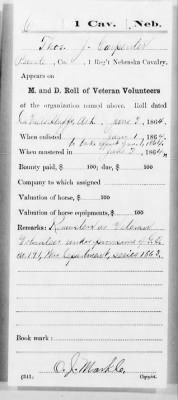 C 1 Cav. Neb.
Thos. J. Carpenter
1 Reg't Nebraska Cavalry.
Appears on
M. and D. Roll of Veteran Volunteers
of the organization named above. Roll dated
Ark. June 2, 1864.
When enlisted 1, 1864
to take effect 1, 1864.
When mustered in June 2, 1864
Bounty paid, $ 100; due, $ 100
Company to which assigned
Valuation of horse, $ 100
Valuation of horse equipments, $ 100.
Remarks: Reenlisted as Veteran
Volunteer under provisions of G.O.
No. 191, War Department, series 1863.
Book mark:
O. J.
(341) Copyist.